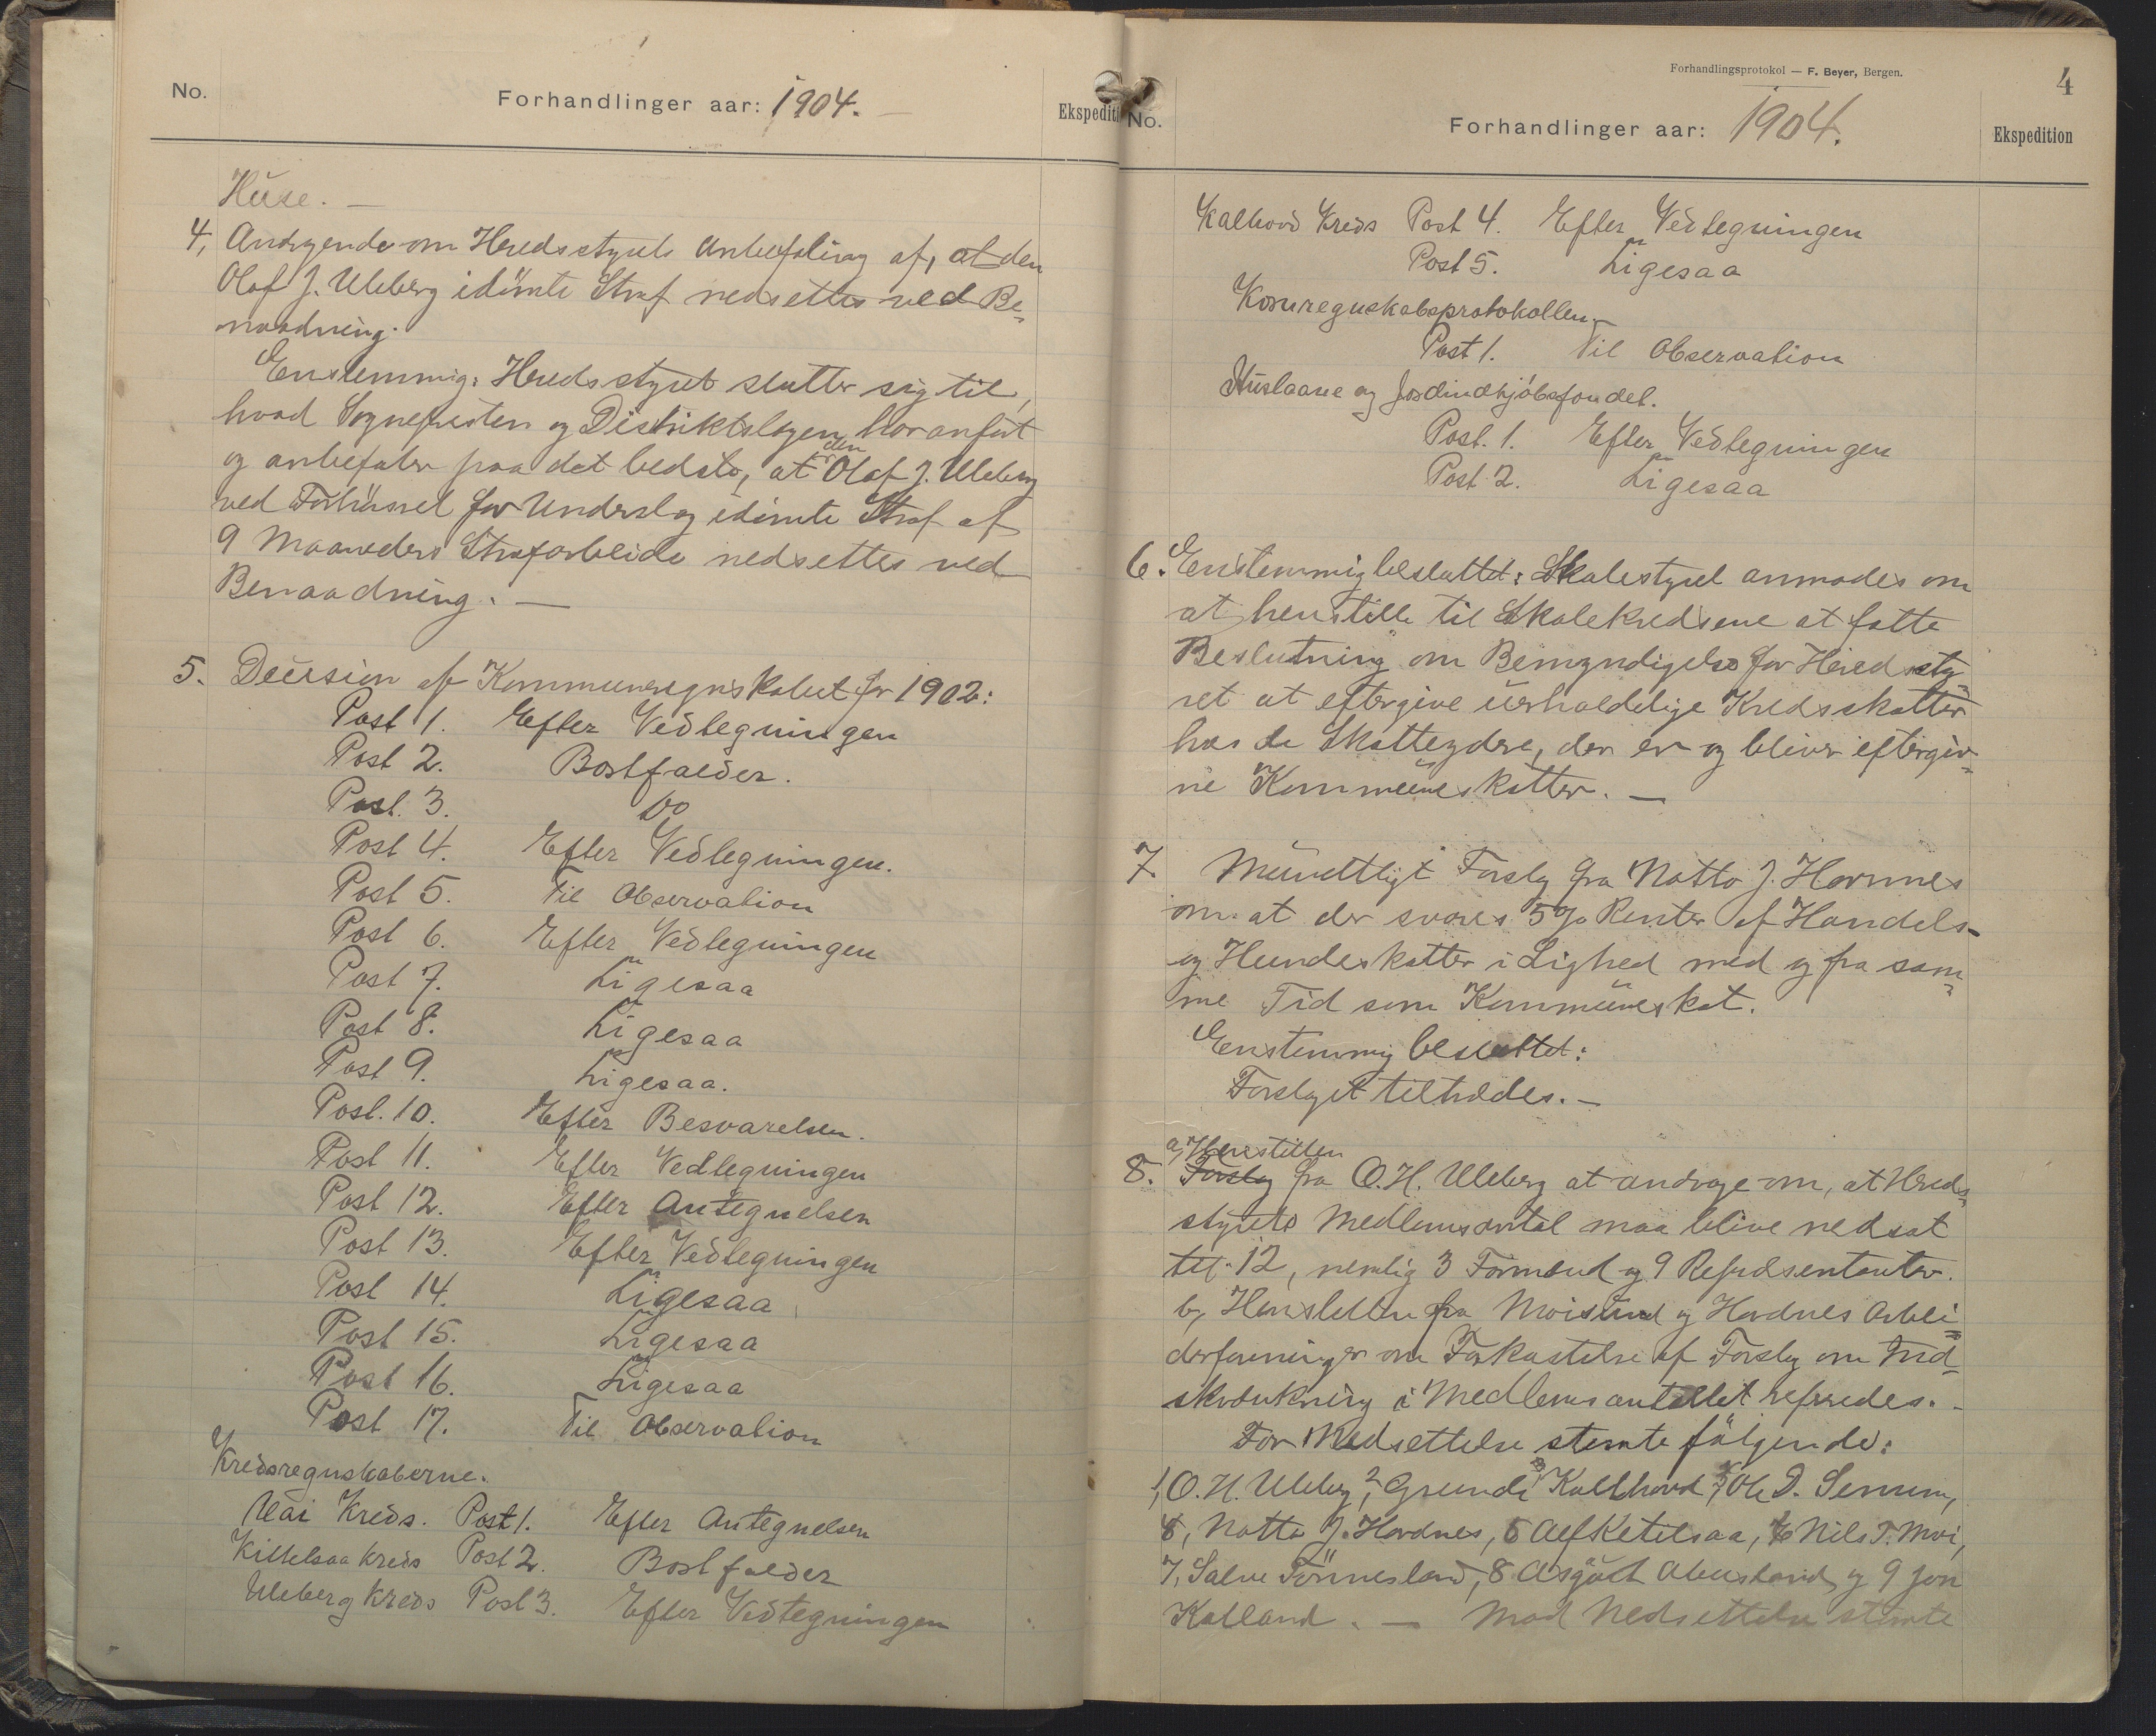 No.
Forhandlinger aar: 1904.
Ekspediti
Huse. —
4, Andragende om Heredsstyrets Anbefaling af, at den
Olaf J. Uleberg idömte Straf nedsettes ved Be-
naadning.
Enstemmig: Heredsstyret slutter sig til,
hvad Sognepresten og Distriktslægen har anført
og anbefaler paa det bedste, at den Olaf J. Uleberg
ved for Underslag idömte Straf af
9 Maaneders Strafarbeide nedsettes ved
Benaadning. —
5. Decision af Kommuneregnskabet for 1902:
Post 1. Efter Vedtegningen
Post 2. Bortfalder.
Post. 3. Do
Post 4. Efter Vedtegningen.
Post 5. Til Observation
Post 6. Efter Vedtegningen
Post 7. Ligesaa
Post 8. Ligesaa
Post 9. Ligesaa.
Post. 10. Efter Besvarelsen.
Post 11. Efter Vedtegningen
Post 12. Efter Antegnelsen
Post 13. Efter Vedtegningen
Post 14. Ligesaa
Post 15. Ligesaa
Post 16. Ligesaa
Post 17. Til Observation
Kredsregnskaberne.
Moi Kreds. Post 1. Efter Antegnelsen
Kittelsaa Kreds Post 2. Bortfalder
Uleberg Kreds Post 3. Efter Vedtegningen
Forhandlingsprotokol — F. Beyer, Bergen.
4
No.
Forhandlinger aar: 1904.
Ekspedition
Kalhovd Kreds Post 4. Efter Vedtegningen
Post 5. Ligesaa
Kornregnskabsprotokollen. —
Post 1. Til Observation
Huslaane og Jordindkjøbsfondet.
Post. 1. Efter Vedtegningen
Post 2. Ligesaa
6. Enstemmig besluttet: Skolestyret anmodes om
at henstille til Skolekredsene at fatte
Beslutning om Bemyndigelse for Heredssty-
ret at eftergive uerholdelige Kredsskatter
hos de Skatteydere, der er og bliver eftergiv-
ne Kommuneskatter. —
7 Mundtligt Forslag fra Notto J. Hornnes
om at der svares 5% Renter af Handels-
og Hundeskatter i Lighed med og fra sam-
me Tid som Kommuneskat.
Enstemmig besluttet:
Forslaget tiltrædes. —
a, Henstillen
8. Forslag fra O. H. Uleberg at andrage om, at Hereds-
styrets Medlemsantal maa blive nedsat
til 12, nemlig 3 Formænd og 9 Repræsentanter.
b, Henstillen fra Moisund og Hordnes Arbei-
derforeninger om Forkastelse af Forslag om Ind-
skrænkning i Medlemsantallet refereredes. -
For Nedsettelse stemte følgende:
1, O. H. Uleberg, 2, Grunde Kalhovd, Ole D. Senum,
Notto J. Hordnes, Alf Ketelsaa, Nils T. Moi,
7, Salve Tønnesland, 8 Asgöt Abusland, og 9 Jon
Kalland. — Mod Nedsettelse stemte